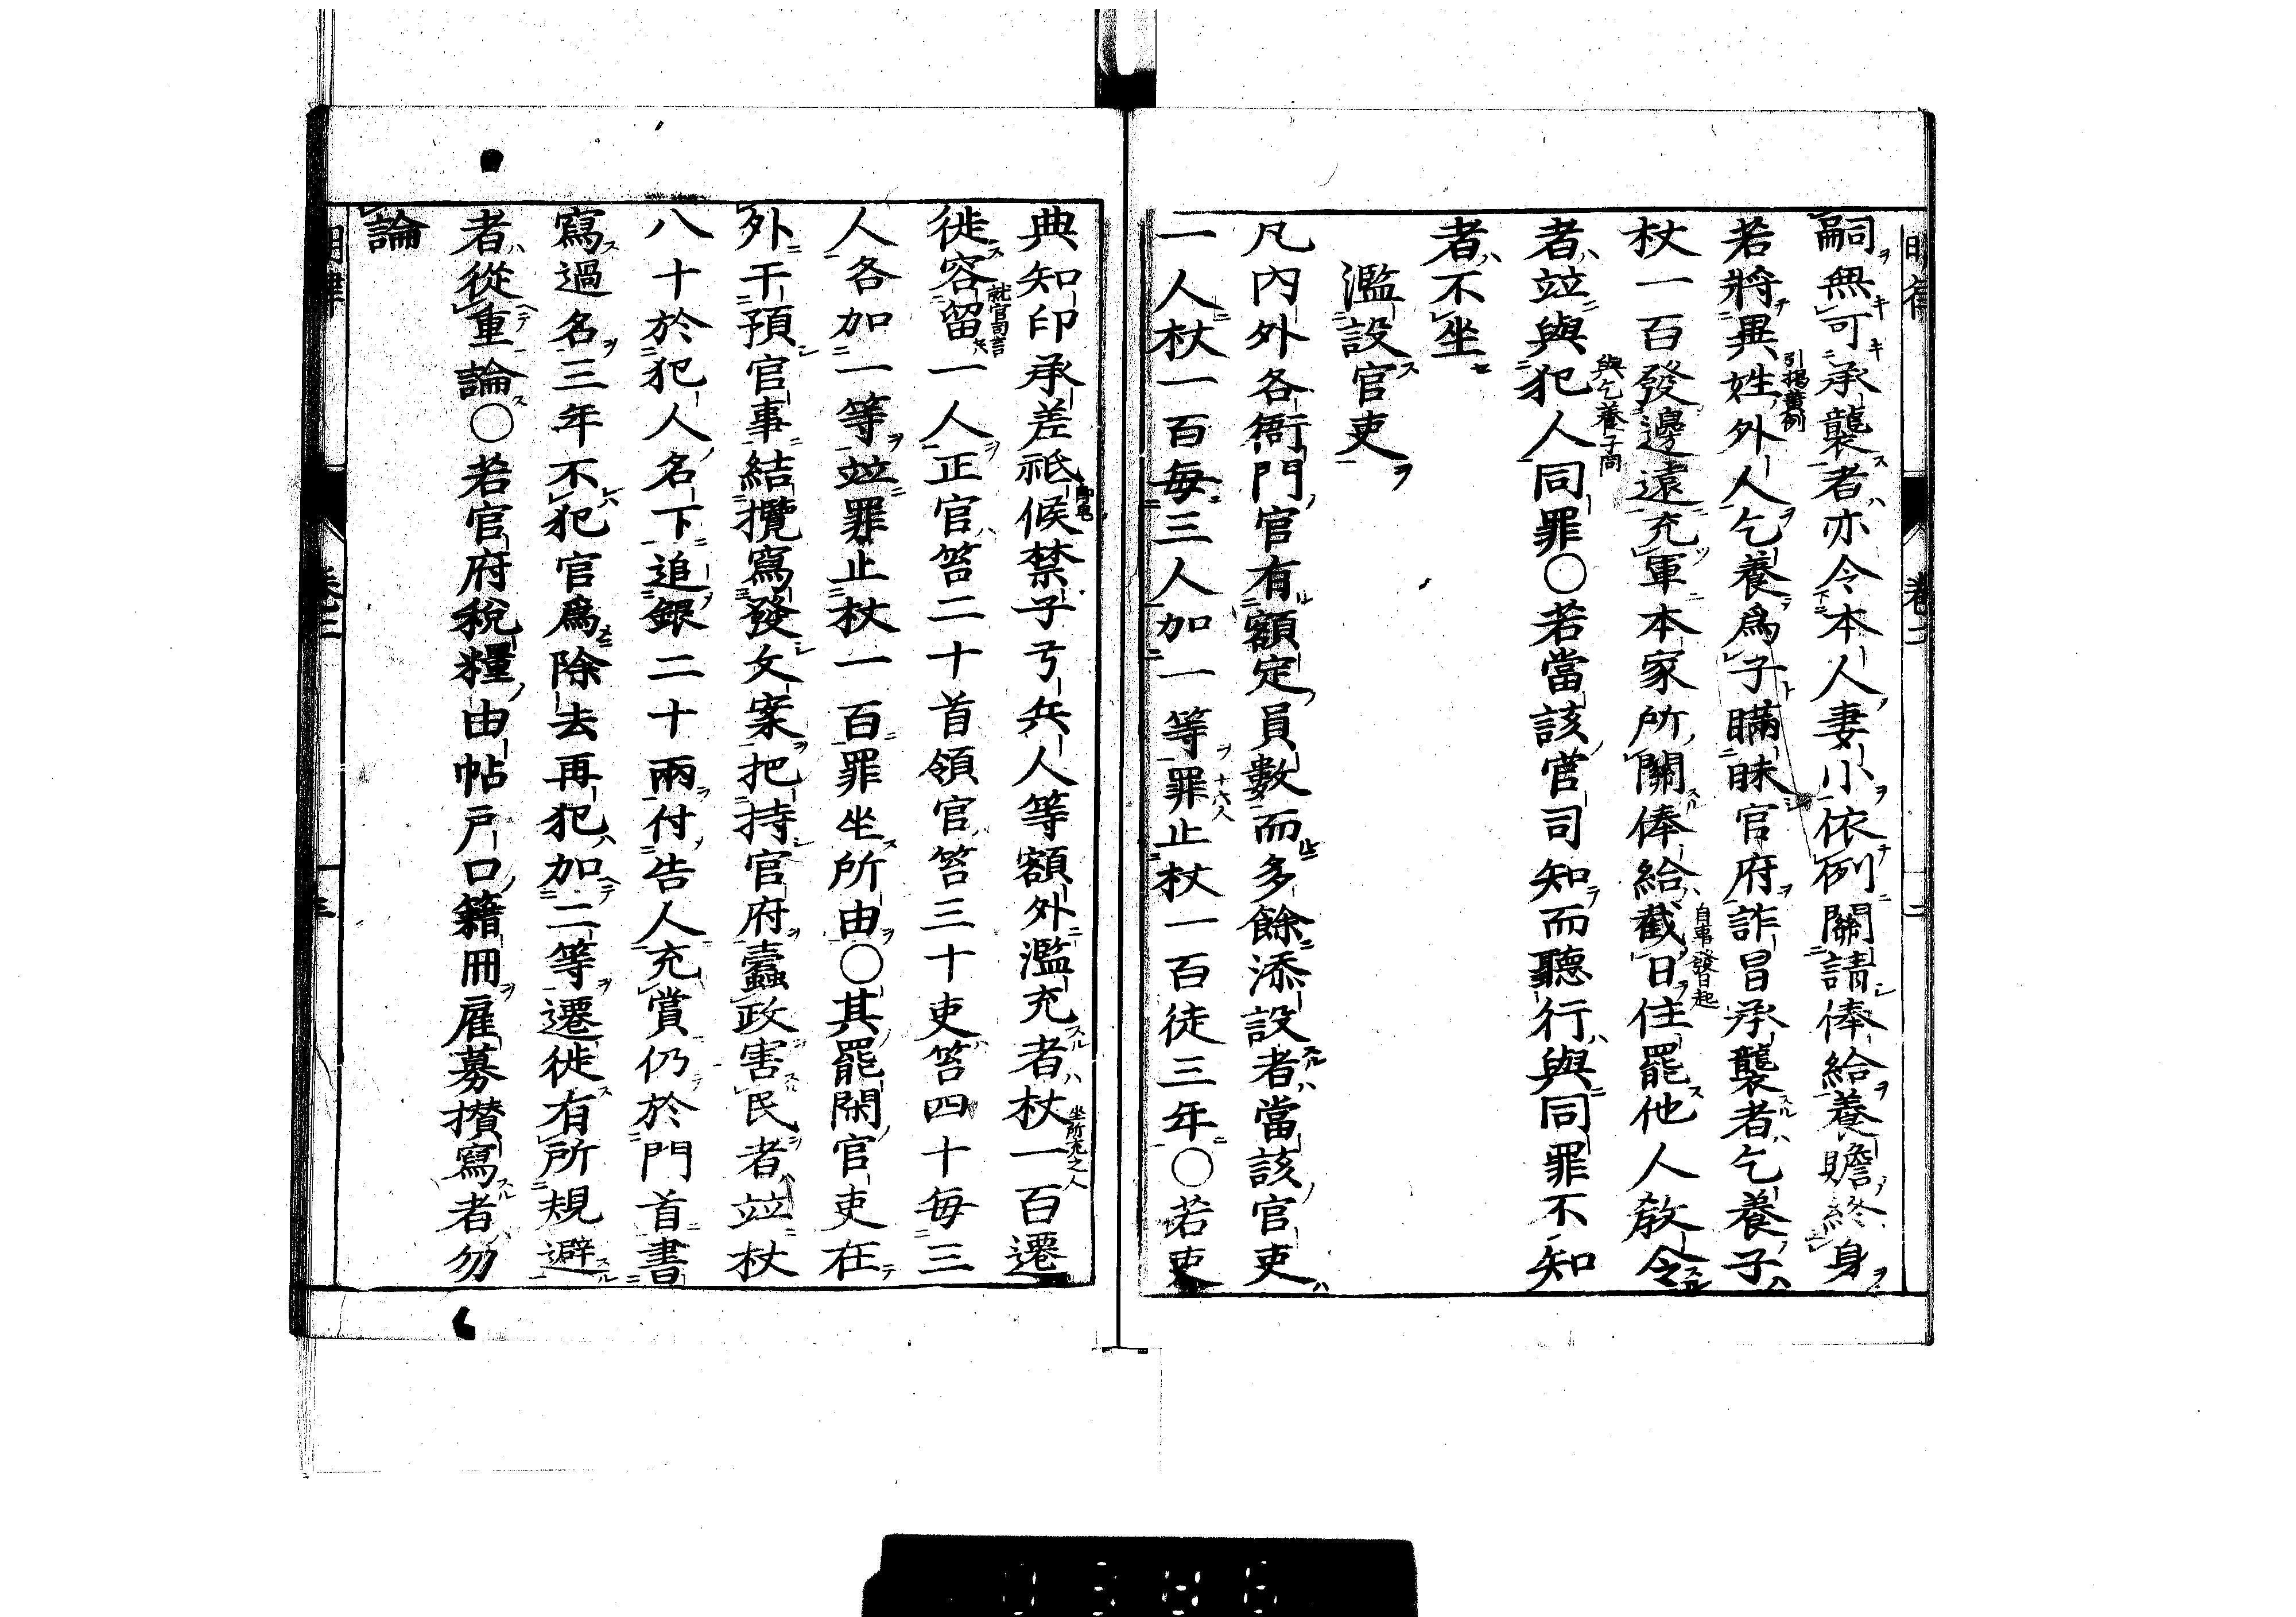 嗣無可承襲者亦令本人妻小依例關請俸給養贍終身
若將異姓外人乞養爲子瞞昧官府詐冒承襲者乞養子
杖一百發邊遠充軍本家所關俸給截日住罷他人敎令
者竝與犯人同罪○若當該官司知而聽行與同罪不知
者不坐
濫設官吏
凡內外各衙門官有額定員數而多餘添設者當該官吏
一人杖一百每三人加一等罪止杖一百徒三年○若吏
典知印承差祗候禁子弓兵人等額外濫充者杖一百遷
徙容留一人正官笞二十首領官笞三十吏笞四十每三
人各加一等竝罪止杖一百罪坐所由○其罷閑官吏在
外干預官事結攬寫發文案把持官府蠹政害民者竝杖
八十於犯人名下追銀二十兩付告人充賞仍於門首書
寫過名三年不犯官爲除去再犯加二等遷徙有所規避
者從重論○若官府稅糧由帖戶口籍冊雇募攅寫者勿
論